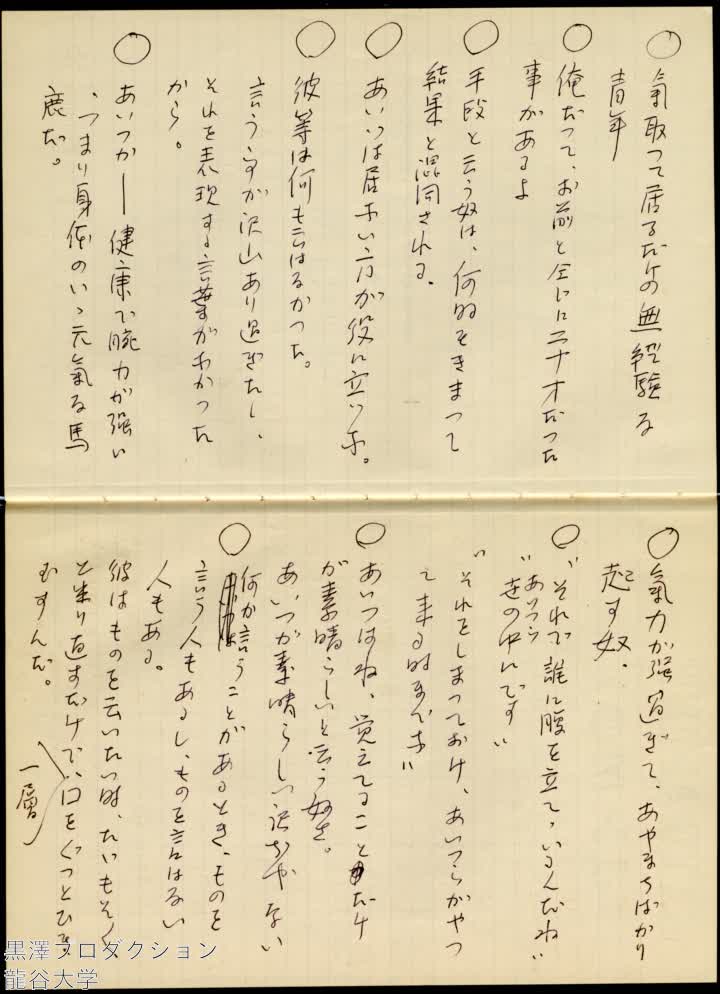 ○ 氣取つて居るだけの無經驗な
青年
○ 俺だつて、お前と全じに二十才だつた
事があるよ
○ 手段と云う奴は、何時もきまつて
結果と混同される。
○ あいつは居ない方が役に立つよ。
○ 彼等は何も云はなかつた。
言う事が沢山あり過ぎたし、
それを表現する言葉がわかつた
から。
○ あいつか──健康で腕力が強い
、つまり身体のいゝ元氣な馬
鹿だ。
○ 氣力が強過ぎて、あやまちばかり
起す奴.
○ "それで誰に腹を立てゝいるんだね"
"あいつら
をの中にです"
"それをしまつておけ、あいつらがやつ
て来る時までね"
○ あいつはね、覚えてることだけ
が素晴らしいと云う奴さ。
あいつが素晴らしい訳ぢやない
○ 何か言うことがあるとき、ものを
言う人もあるし、ものを言はない
人もある。
彼はものを云いたい時、たいもそ
と坐り直すだけで、口をぐつとひき
むすんだ。
一層
黒澤プロダクション
龍谷大学